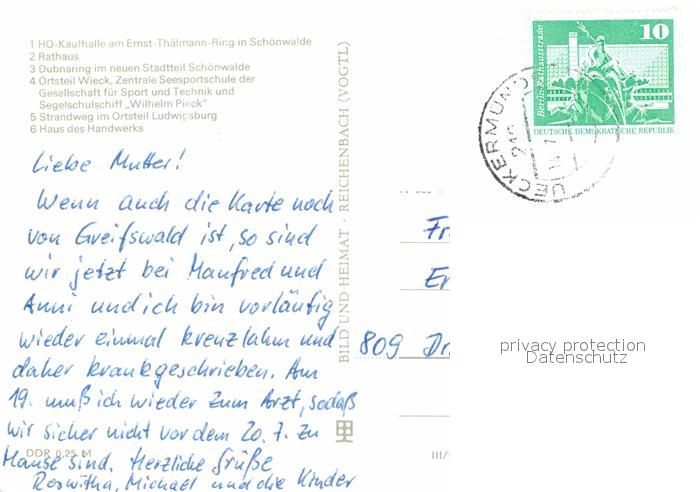 1 HO-Kaufhalle am Ernst-Thälmann-Ring in Schönwalde
2 Rathaus
3 Dubnaring im neuen Stadtteil Schönwalde
4 Ortsteil Wieck, Zentrale Seesportschule der
Gesellschaft für Sport und Technik und
Segelschulschiff „Wilhelm Pieck"
5 Strandweg im Ortsteil Ludwigsburg
6 Haus des Handwerks
Liebe Mutter!
Wenn auch die Karte noch
von Greifswald ist, so sind
wir jetzt bei Manfred und
Anni und ich bin vorläufig
wieder einmal kreuzlahm und
daher krankgeschrieben. Am
19. muß ich wieder zum Arzt, sodaß
wir sicher nicht vor dem 20. 7. zu
Hause sind. Herzliche Grüße
Roswitha, Michael und die Kinder
DDR 0,25 M
BILD UND HEIMAT · REICHENBACH (VOGTL)
III/
10
Berlin-Rathausstraße
DEUTSCHE DEMOKRATISCHE REPUBLIK
UECKERMÜND
Fr
Er
809 Dr
privacy protection
Datenschutz